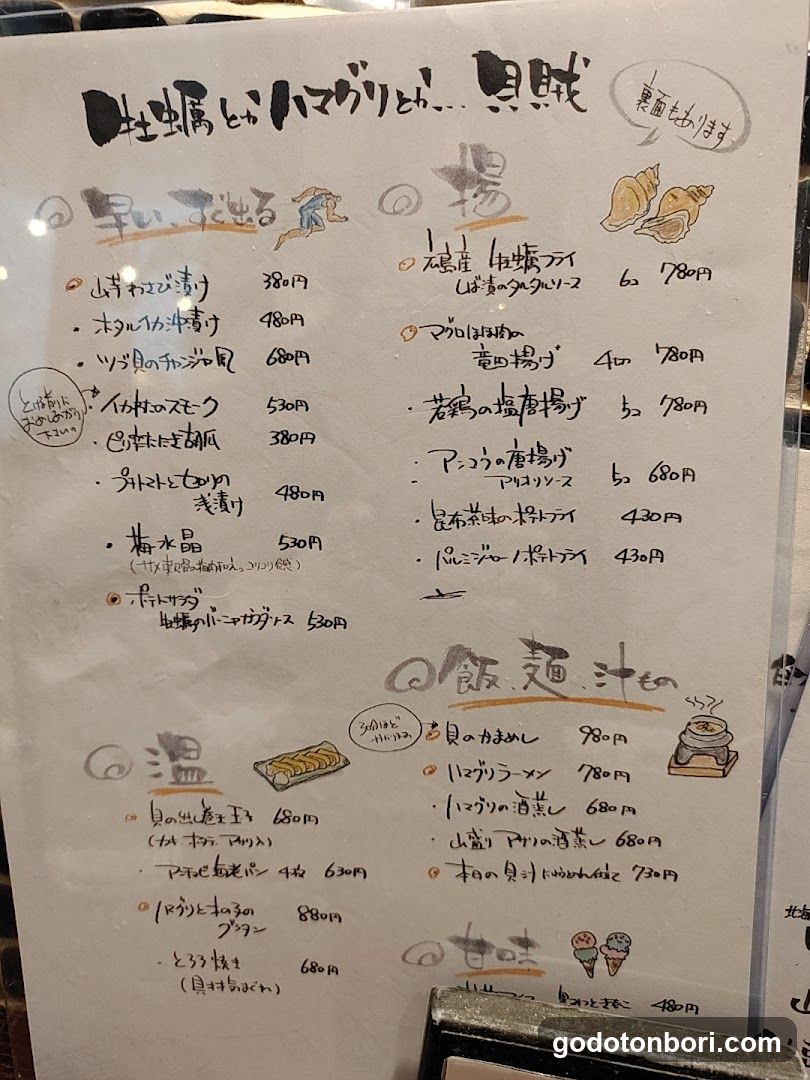 牡蠣とかハマグリとか… 貝賊
裏面もあります
早い、すぐ出る
山芋わさび漬け 380円
ホタルイカ沖漬け 480円
ツブ貝のチャンジャ風 680円
イカ村のスモーク 530円
ピリ辛たたき胡瓜 380円
プチトマトとセロリの
浅漬け 480円
梅水晶 530円
(サメ軟骨の梅肉和え。コリコリ食感)
ポテトサラダ
牡蠣のバーニャカウダソース 530円
温
貝の出し巻き玉子 680円
(カキ、ホタテ、アサリ入)
アンチョビ海老パン 4枚 630円
ハマグリときの子の
グラタン 880円
とろろ焼き 680円
揚
広島産 牡蠣フライ
しば漬のタルタルソース 6コ 780円
マグロほほ肉の
竜田揚げ 4コ 780円
若鶏の塩唐揚げ 5コ 780円
アンコウの唐揚げ
アリオリソース 5コ 680円
昆布茶味のポテトフライ 430円
パルミジャーノポテトフライ 430円
飯、麺、汁もの
30分ほど
貝のかまめし 980円
ハマグリラーメン 780円
ハマグリの酒蒸し 680円
山盛り アサリの酒蒸し 680円
本日の貝汁 にゅうめん仕立て 730円
甘味
480円
godotonbori.com